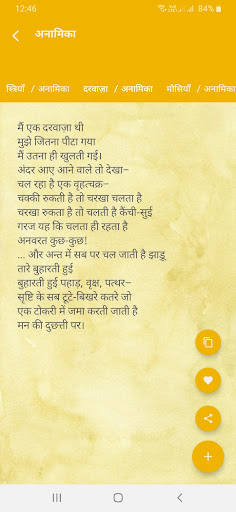 12:46
84%
अनामिका
स्त्रियाँ / अनामिका दरवाज़ा / अनामिका मौसियाँ / अनामिका
मैं एक दरवाज़ा थी
मुझे जितना पीटा गया
मैं उतना ही खुलती गई।
अंदर आए आने वाले तो देखा–
चल रहा है एक वृहत्चक्र–
चक्की रुकती है तो चरखा चलता है
चरखा रुकता है तो चलती है कैंची-सुई
गरज यह कि चलता ही रहता है
अनवरत कुछ-कुछ!
... और अन्त में सब पर चल जाती है झाड़ू
तारे बुहारती हुई
बुहारती हुई पहाड़, वृक्ष, पत्थर–
सृष्टि के सब टूटे-बिखरे कतरे जो
एक टोकरी में जमा करती जाती है
मन की दुछत्ती पर।